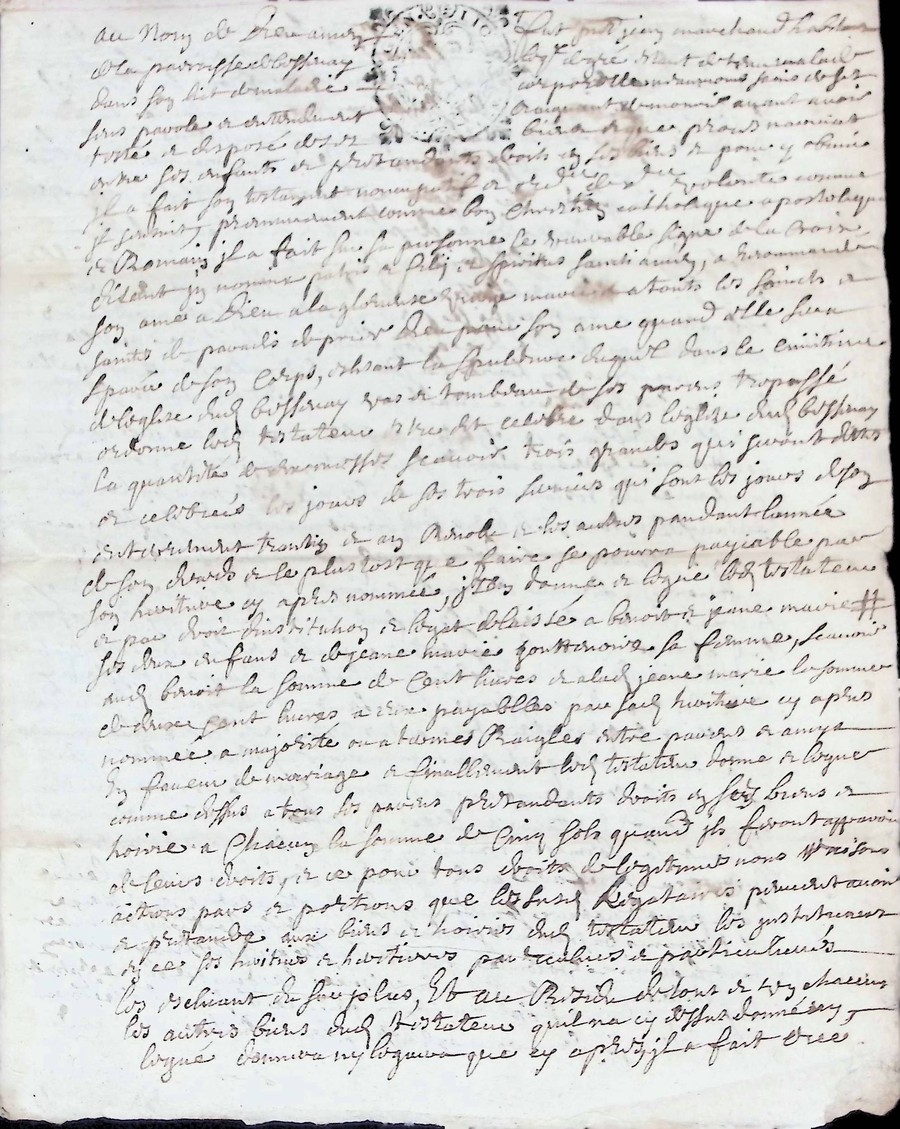 au Nom de Dieu amen fut pnt jean marchand habitan
de la parroisse de bessenay leql de gré étant detenu malade
dans son lit de maladie corporelle neanmoins sains de ses
sens parole et entendement craignant de mourir avant avoir
testé et disposé de ses biens et que procès
entre ses enfants et pretandants droits en ses biens et pour y obvier
il a fait son testament noncupatif et de volonté comme
il sensuit, premierement comme bon Chrestien catholique apostolique
et Romain il a fait sur sa personne le venerable signe de la croix
disant in nomine patris et filij et spiritus sancti amen, a recommandé
son ame a Dieu a la glorieuse vierge marie et a touts les saincts et
saintes de paradis de prier Dieu pour son ame quand elle sera
separée de son corps, elisant la sepulture diceluy dans le cimitiere
de leglise dud bessenay vas et tombeau de ses parens trepassé
ordonne led testateur etre dit celebré dans leglise dud bessenay
la quantité de messes scavoir trois grandes qui seront dites
et celebrées les jours de ses trois services qui sont les jours de son
enterrement trentin et au Revolu et les autres pandant lannée
de son deceds et le plustost que faire se pourra payiable par
son heritiere cy apres nommée, item donne et legue led testateur
et par droit dinstitution et leget delaissé a benoit et jeane marie
ses deux enfans et de jeane marie gouttenoire sa femme, scavoir
aud benoit la somme de Cent livres et a lad jeane marie la somme
de deux Cent livres a eux payables par sad heritiere cy apres
nommée a majorité ou a termes Raigles entre parens et amys
en faveur de mariage et finallement led testateur donne et legue
comme dessus a tous ses parens pretandants droits en sesd biens et
hoirie a Chacun la somme de Cinq sols quand ils feront apparoir
de leurs droits, et ce pour tous droits de legitimes noms Raisons
actions pars et portions que lessusd Legataires peuvent avoir
et pretandre aux biens et hoiries dud testateur les instituant
en ce ses heritiers et heritieres particuliers et particulieres
les excluant du surplus, Et au Residu de tout et un chacuns
les autres biens dud testateur quil na cy dessus donné ny
legué donnera ny leguera que cy apres il a fait